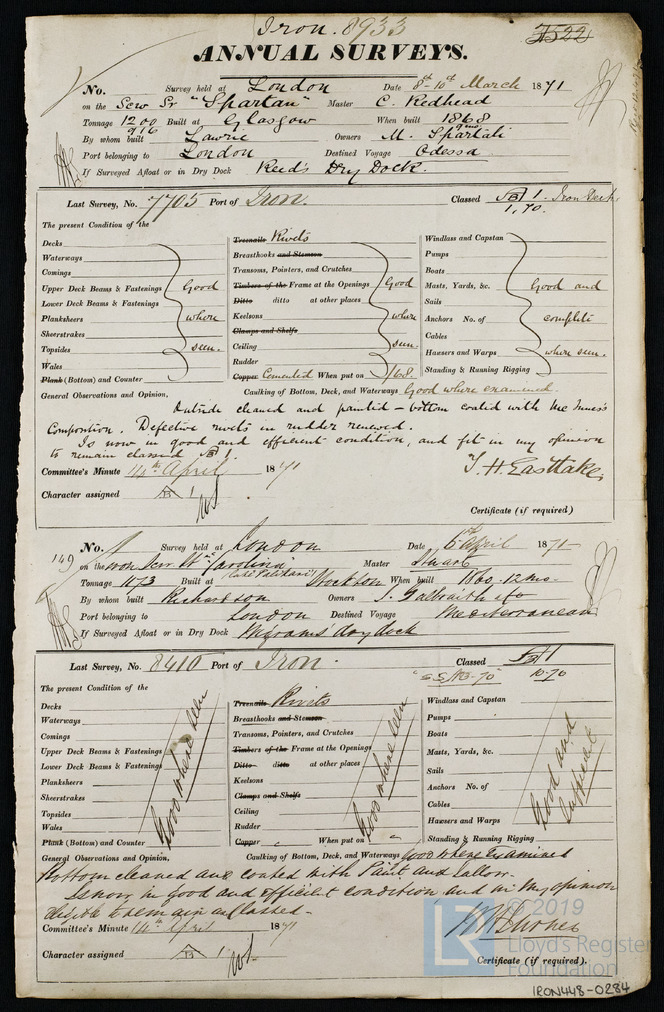 Iron. 8933
7522
ANNUAL SURVEYS.
No. Survey held at London Date 8th-10th March 1871
on the Scw Sr "Spartan" Master C. Redhead
Tonnage 1200 Built at Glasgow When built 1868
916
By whom built Lawrie Owners M. Spartali
Port belonging to London Destined Voyage Odessa
If Surveyed Afloat or in Dry Dock Reed's Dry Dock.
Last Survey, No. 7705 Port of Iron. Classed B 1. Iron Deck
1,70.
The present Condition of the
Decks
Waterways
Comings
Upper Deck Beams & Fastenings
Lower Deck Beams & Fastenings
Planksheers
Sheerstrakes
Topsides
Wales
Plank (Bottom) and Counter
Good
where
seen.
Treenails Rivets
Breasthooks and Stemson
Transoms, Pointers, and Crutches
Timbers of the Frame at the Openings
Ditto ditto at other places
Keelsons
Clamps and Shelfs
Ceiling
Rudder
Copper Cemented When put on 1/68
Good
where
seen.
Windlass and Capstan
Pumps
Boats
Masts, Yards, &c.
Sails
Anchors No. of
Cables
Hawsers and Warps
Standing & Running Rigging
Good and
complete
where seen.
General Observations and Opinion, Caulking of Bottom, Deck, and Waterways Good where examined.
Outside cleaned and painted – bottom coated with McInnes's
Composition. Defective rivets in rudder renewed.
Is now in good and efficient condition, and fit in my opinion
to remain classed B 1.
T. H. Eastlake.
Committee's Minute 14th April 1871
Character assigned B 1
Certificate (if required)
149
No. Survey held at London Date 6th April 1871
on the Iron Scw Str Carolina Master Stuart
(late Pelitari)
Tonnage 1173 Built at Stockton When built 1860. 12 mo.
By whom built Richardson Owners J. Galbraith & Co
Port belonging to London Destined Voyage Mediterranean
If Surveyed Afloat or in Dry Dock Wigrams' dry dock
Last Survey, No. 8410 Port of Iron. Classed B 1
10-70
The present Condition of the
Decks
Waterways
Comings
Upper Deck Beams & Fastenings
Lower Deck Beams & Fastenings
Planksheers
Sheerstrakes
Topsides
Wales
Plank (Bottom) and Counter
Good where seen
Treenails Rivets
Breasthooks and Stemson
Transoms, Pointers, and Crutches
Timbers of the Frame at the Openings
Ditto ditto at other places
Keelsons
Clamps and Shelfs
Ceiling
Rudder
Copper " When put on "
Good where seen
Windlass and Capstan
Pumps
Boats
Masts, Yards, &c.
Sails
Anchors No. of
Cables
Hawsers and Warps
Standing & Running Rigging
Good and
sufficient
General Observations and Opinion, Caulking of Bottom, Deck, and Waterways Good where examined
Bottom cleaned and coated with Paint and tallow.
Is now in good and efficient condition and in my opinion
eligible to remain as classed.
Committee's Minute 14th April 1871
Character assigned B 1
Certificate (if required).
© 2019
LR
Lloyd's Register
Foundation
IRON448-0284